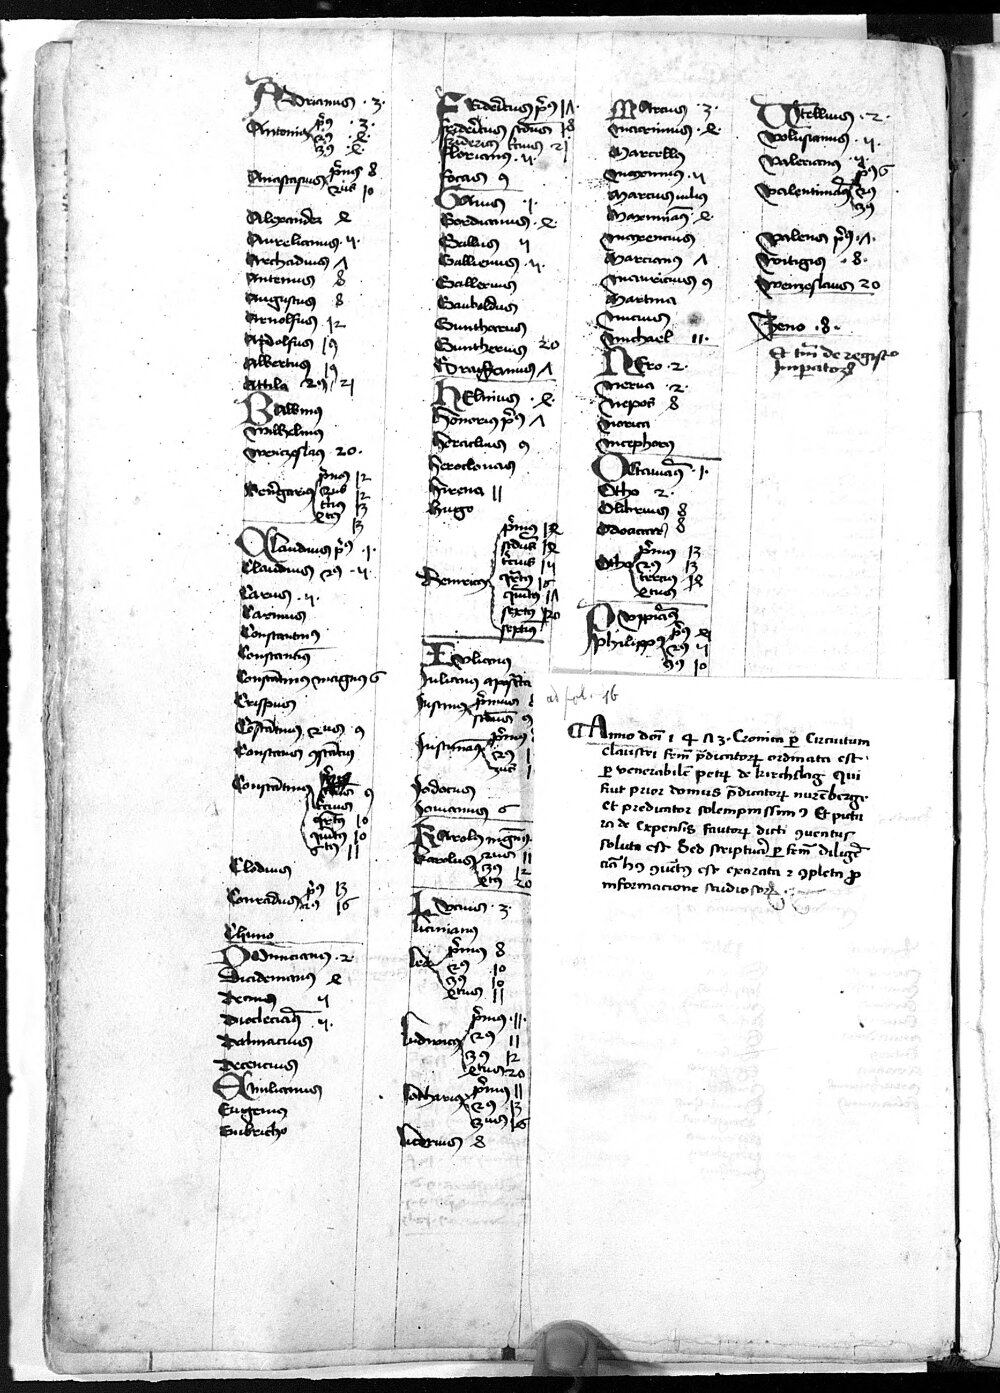 Adrianus · 3 ·
Antoni9 p̄9 · 3 ·
29 · 4 ·
39 · 4 ·
Anastasius p̄mus 8
2us 10
Alexander 4
Aurelianus · 4 ·
Archadius 7
Antemius 8
Augustus 8
Arnolfus 12
Adolfus 19
Albertus 19
Attila 29 / 21
Balbinus
Wilhelmus
Wenczeslaus 20 ·
Berengarius p̄mus 12
2us 12
t̄cius 13
4tus 13
Claudius p̄9 · 1 ·
Claudius 29
Carus
Carinus
Constantinus
Constantius
Constantinus magnus 6
Crispus
Constantinus 2us 9
Constans
Constantinus
t̄cius 9
qrtus 10
quintus 10
6tus 11
Clodius
Conradus p̄9 13
29 16
Chuno
Domicianus · 2
Diademenus 4
Decius
Dioclecian9
Dalmacius
Decencius
Emilianus
Eugenius
Fridericus p̄9 17
fridericus scdus 18
fridericus tcius 21
florianus
focas 9
Gaius · 1 ·
Gordianus · 4
Gallus
Gallienus
Gallerius
Guntharus
Guntherus 20
Gracianus 7
Helvius · 4
Honorius p̄9 7
Heraclius 9
Heraclonas
Hirena 11
Hugo
Henricus p̄mus
scdus
tcius
qrtus 16
quintus 17
sextus 20
septimus
Iulianus
Iulianus apostata
Iustinus p̄mus
scdus 9
Iustinianus p̄mus
29
3us
Jodocus
Jovianus 6
Karolus magnus
Karolus 2us 11
39 12
4tus 20
Lucius · 3 ·
Licinianus
Leo p̄mus 8
29 10
39 10
4tus 11
Ludwicus p̄mus · 11 ·
29 11
39 12
4tus 20
Lotharius p̄mus 11
29 13
3us 16
Marcus · 3 ·
Macrinus · 4
Marcellus
Maximus
Marcus iulius
Maximian9 · 4
Maxencius
Marcianus 7
Mauricius 9
Martina
Michael 11 ·
Nero · 2 ·
Nerva · 2 ·
Nepos 8
Norica
Nicephorus
Octavian9 · 1 ·
Otho 2 ·
Olibrius 8
Odoacer 8
Otho p̄mus 13
29 13
tercius
4tus
Pupienus
Philippus p̄9
29
39 10
Vitellius · 2 ·
Volusianus
Valerianus
Valentinian9 p̄9 6
29
39
Valens p̄9 · 7 ·
Witigis · 8 ·
Wenzeslaus 20
Zeno · 8 ·
Et tm̄ de registro
Imperatorum
ad fol. 16
Anno dom̄ 1 4 A 3 · Cronica p circuitum
claustri frm̄ p̄dicatorum ordinata est
p venerabilē petrum de kirchslag qui
fuit prior domus p̄dicatorum nurēberge
et predicator solempnissimus Et pictura
de expensis fautorum dicti conventus
soluta est Sed scriptura p frm̄ diligē
ciam huius conventus est exarata 2 completa p
informacione studiosorum